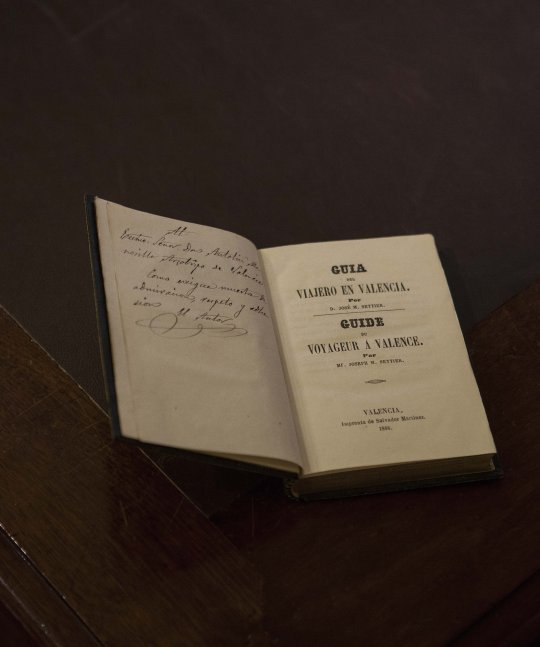 Al
Excmo. Señor Don Antolín
Arzobispo de Valencia
Como exigua muestra de
admiracion, respeto y adhe-
sion
El Autor
GUIA
DEL
VIAJERO EN VALENCIA.
Por
D. JOSÉ M. SETTIER.
GUIDE
DU
VOYAGEUR A VALENCE.
Par
MR. JOSEPH M. SETTIER.
VALENCIA,
Imprenta de Salvador Martinez.